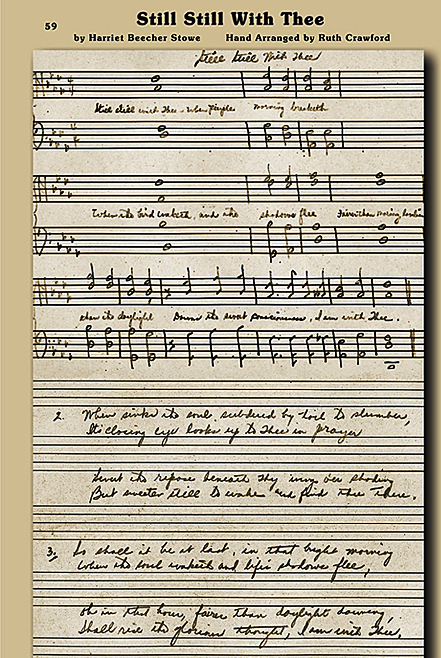 Still Still With Thee
59
by Harriet Beecher Stowe Hand Arranged by Ruth Crawford
Still Still With Thee
Still still with Thee when purple morning breaketh
When the bird waketh, and the shadows flee
Fairer than morning
than the daylight Dawns the sweet consciousness, I am with Thee.
2. When sinks the soul, subdued by toil to slumber,
Its closing eye looks up to Thee in prayer
Sweet the repose beneath Thy wings oer shading
But sweeter still to wake and find thee there.
3. So shall it be at last, in that bright morning
When the soul waketh and life's shadows flee,
Oh in that hour, fairer than daylight dawning,
Shall rise the glorious thought, I am with Thee,